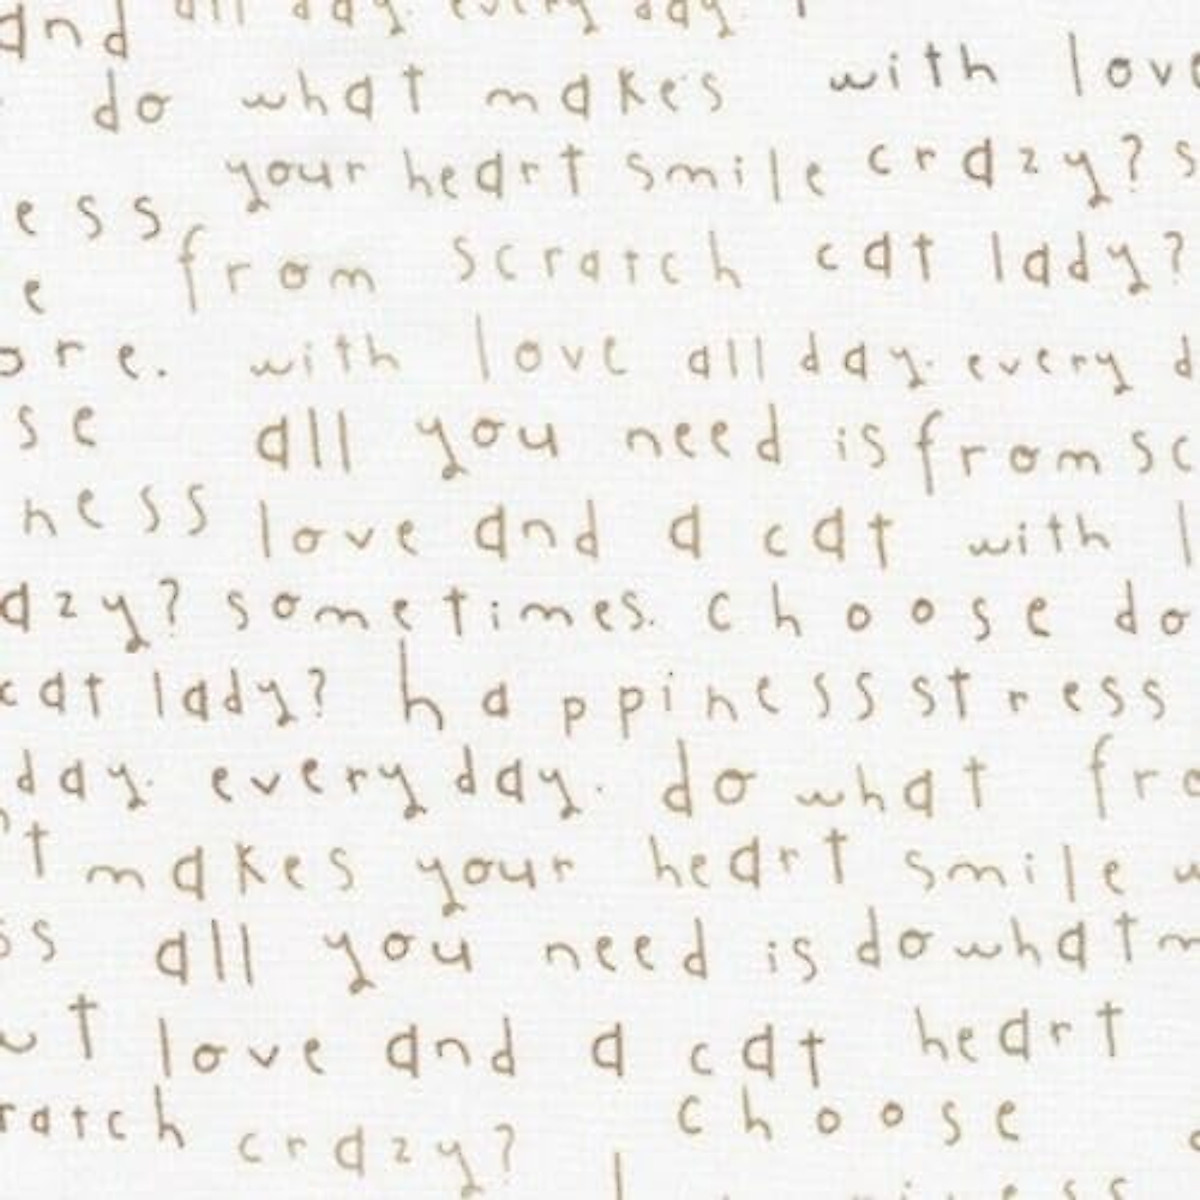 and all day. every day.
do what makes with love
your heart smile crazy? s
ess from scratch cat lady?
e
ore. with love all day. every d
se all you need is from sc
ness love and a cat with l
azy? sometimes. choose do
cat lady? happiness stress
day. every day. do what fro
t makes your heart smile w
ss all you need is do what m
ut love and a cat heart
ratch crazy? choose